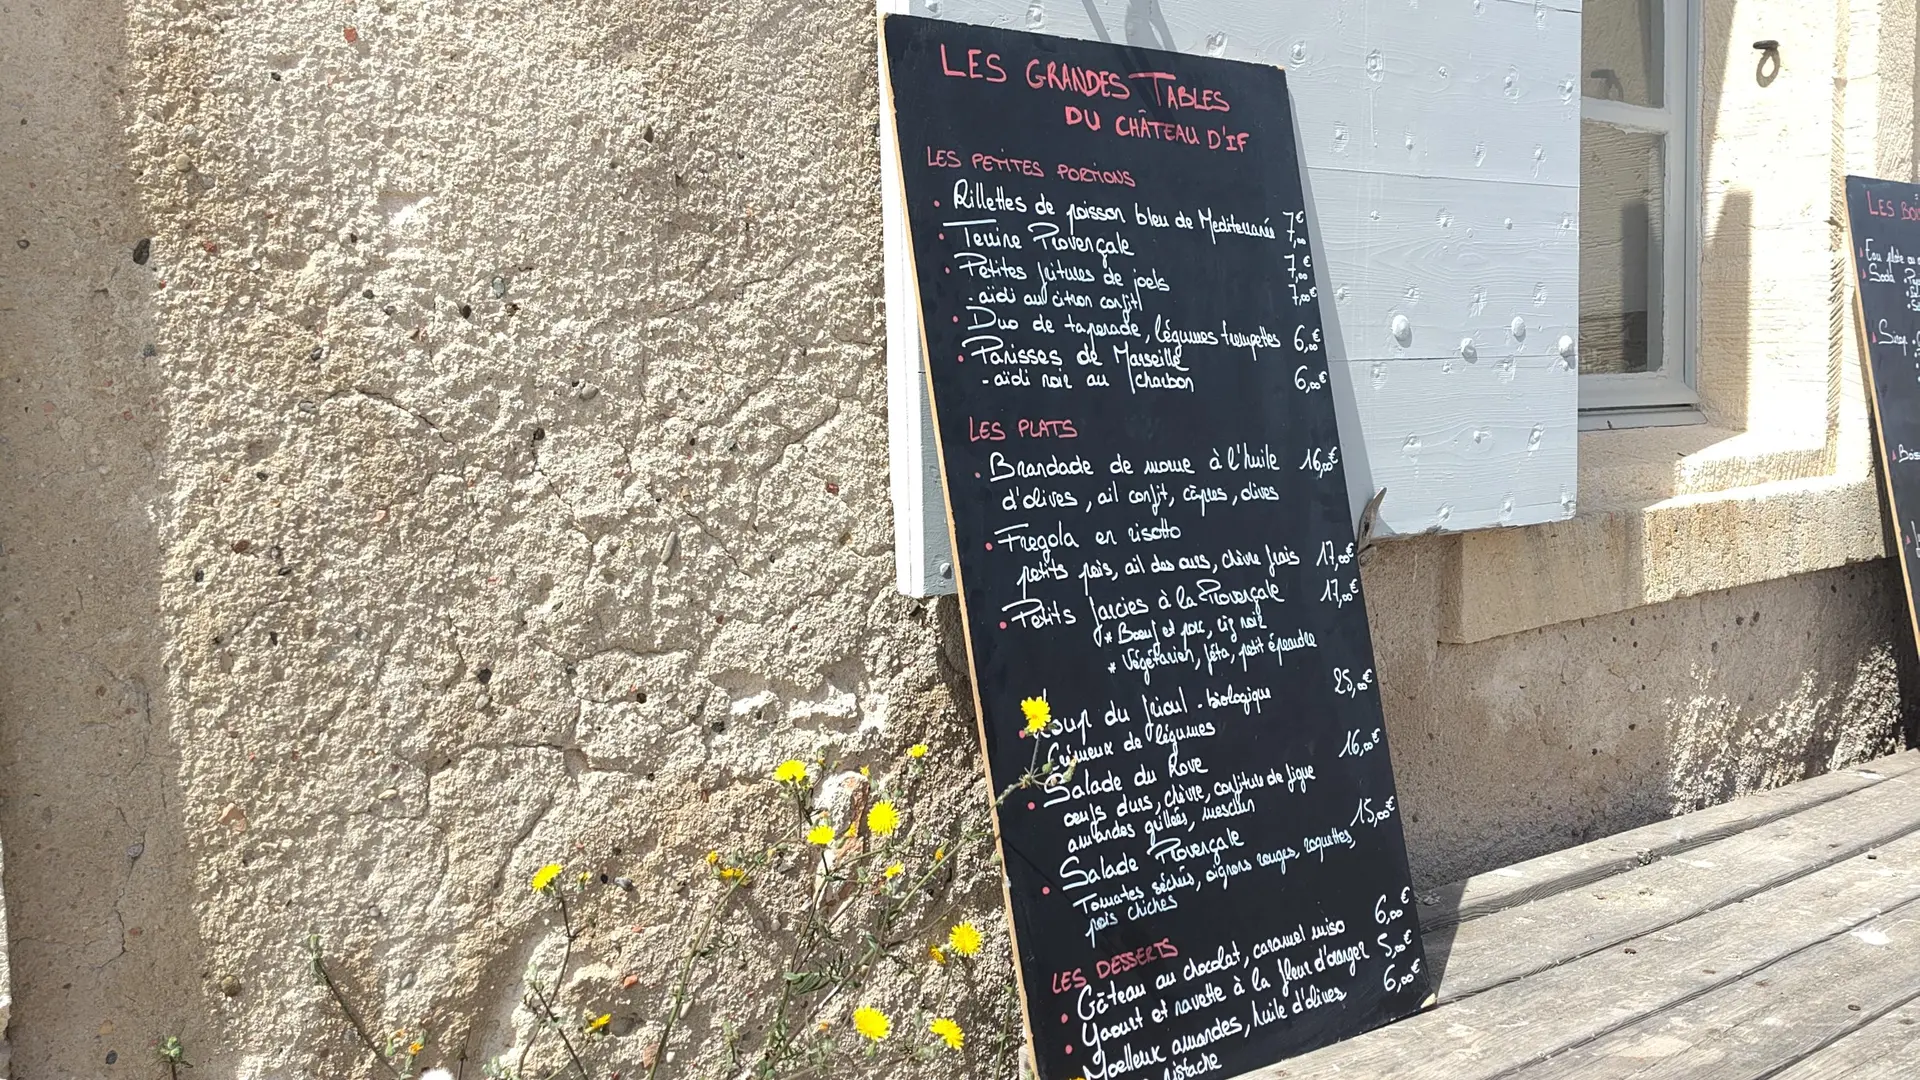 LES GRANDES TABLES
DU CHÂTEAU D'IF
LES PETITES PORTIONS
Rillettes de poisson bleu de Mediterranée 7,00€
Terrine Provençale 7,00€
Petites fritures de joels 7,00€
- aïoli au citron confit
Duo de tapenade, légumes trempettes 6,00€
Panisses de Marseille
- aïoli noir au charbon 6,00€
LES PLATS
Brandade de morue à l'huile 16,00€
d'olives, ail confit, câpres, olives
Fregola en risotto
petits pois, ail des ours, chèvre frais 17,00€
Petits farcies à la Provençale 17,00€
* Boeuf et porc, riz noir
* Végétarien, féta, petit épeautre
Loup du frioul - biologique 25,00€
Crémeux de légumes
Salade du Rove 16,00€
oeufs durs, chèvre, confiture de figue
amandes grillées, mesclun
Salade Provençale 15,00€
Tomates séchés, oignons rouges, roquettes,
pois chiches
LES DESSERTS
Gâteau au chocolat, caramel miso 6,00€
Yaourt et navette à la fleur d'oranger 5,00€
Moelleux amandes, huile d'olives 6,00€
pistache
LES
Eau plate ou
Soda
Sirop